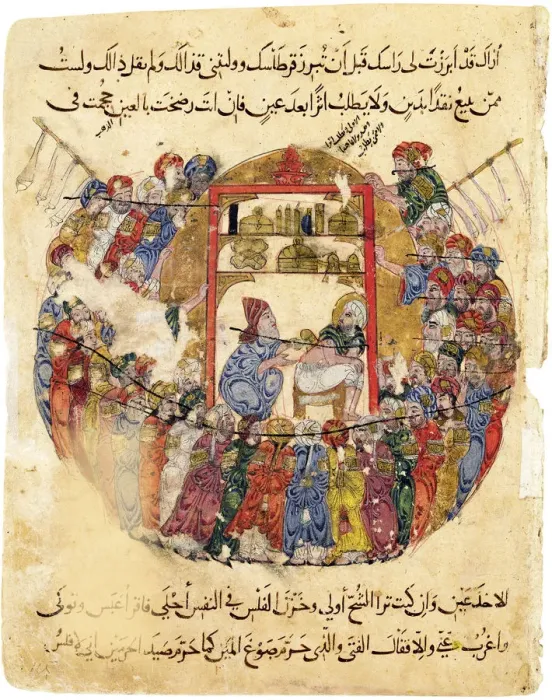 أراك قَدْ أبرَزتَ لي راسك قبل أن تُبرز قرطاسك ووليتني قذالك ولم تقل ذا لك ولست
ممّن يبيع نقدًا بدَينٍ ولا يطلب اثرًا بعد عينٍ فان انت رضخت بالعين حجمت في
الاخدعين وان كنت ترا الشحّ أولي وخزن الفلس في النفس أحلي فاقرأ عبس وتولى
واغرب عني والّا فقال الفتى والذي حرّم صوغ المين كما حرّم صيد الحرمين اني